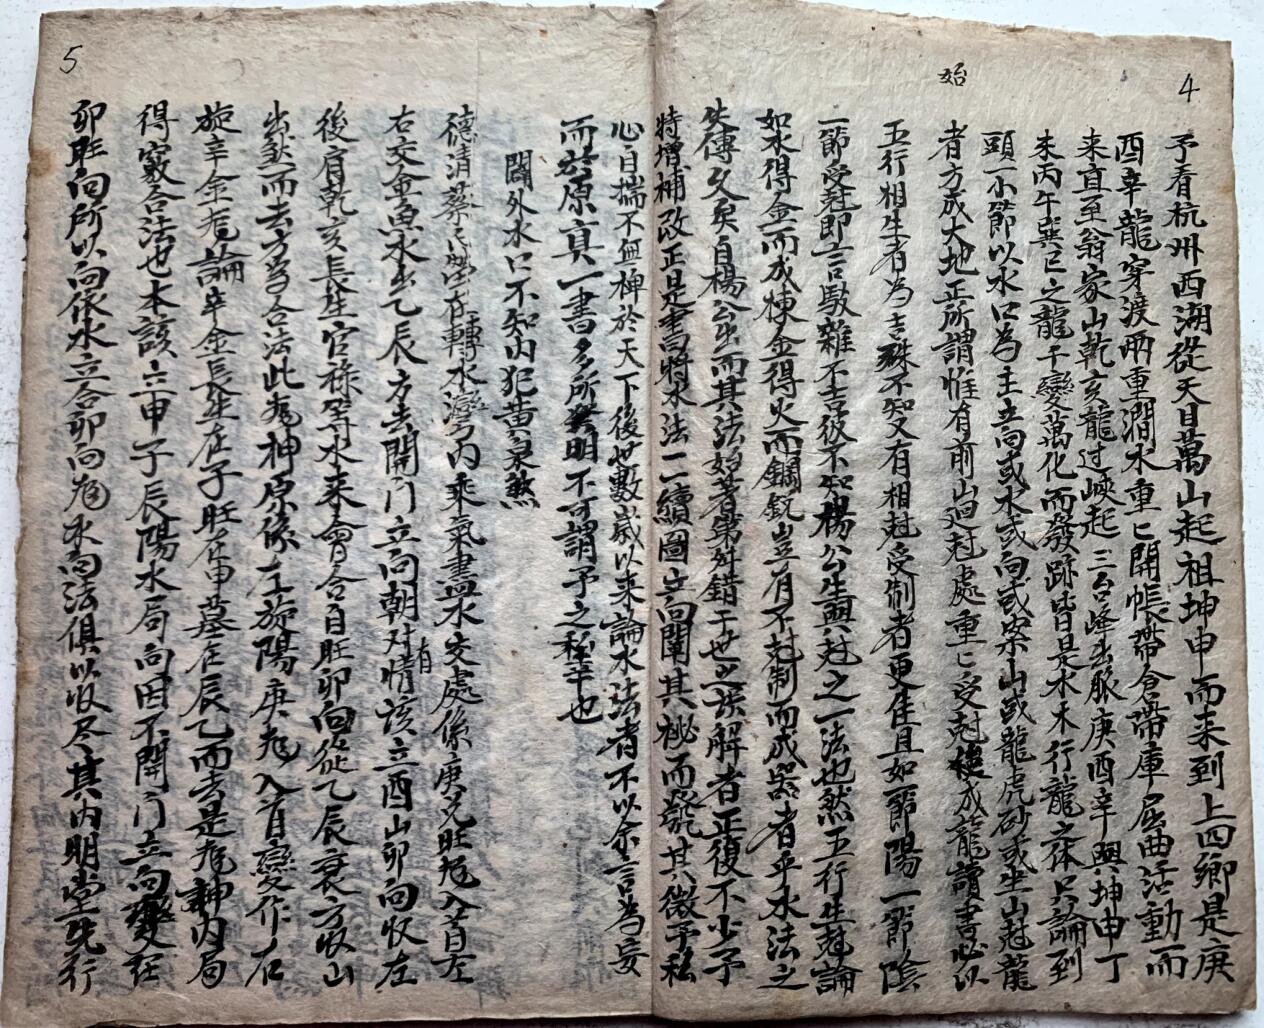 4
予看杭州西湖從天目萬山起祖坤申而来到上四鄉是庚
酉辛龍穿渡兩重澗水重〻開帳帶倉帶庫屈曲活動而
来直至翁家山乾亥龍过峽起三台峰出脈庚酉辛與坤申丁
未丙午巽巳之龍千變萬化而發跡皆是水木行龍之体只論到
頭一小節以水口為主立向或水或向或案山或龍虎砂或坐山尅龍
始
者方成大地正所謂惟有前山迴尅處重〻受尅成龍讀書必以
五行相生者為吉殊不知又有相尅受制者更佳且如一節陽一節陰
一節受尅即言駁雜不吉彼不知楊公生與尅之一法也然五行生尅論
如木得金而成棟金得火而鋼銳豈有不尅制而成器者乎水法之
失傳久矣自楊公出而其法始著第舛錯于世之誤解者正復不少予
特增補改正是書將水法二續圖立向闡其秘而發其微予私
心自揣不無裨於天下後世數歲以来論水法者不以余言為妄
而於原真一書多所發明不可謂予之私幸也
閞外水口不知内犯黄泉煞
5
德清蔡氏塋在轉水灣内乘氣盡水交處係庚兄旺龍入首左
右交金魚水出乙辰方去開门立向朝对有情該立酉山卯向收左
後肩乾亥長生官祿等水来會合自旺卯向從乙辰衰方收山
出煞而去方为合法此龍神原係左旋陽庚龍入首變作右
旋辛金龍論辛金長生在子旺在申墓在辰乙而去是龍神内局
得竅合法也本該立申子辰陽水局向因不開门立向變在
卯旺向所以向依水立合卯向龍水向法俱以收尽其内明堂先行